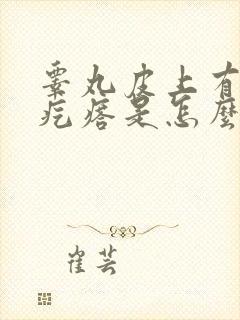 睾丸皮上有
疙瘩是怎麼
崔芸